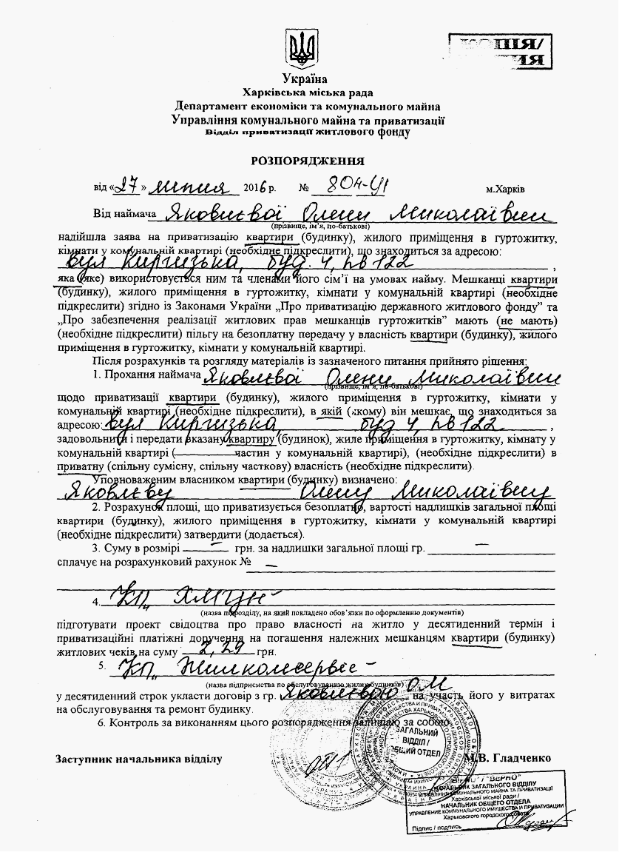 КОПІЯ/
Україна
Харківська міська рада
Департамент економіки та комунального майна
Управління комунального майна та приватизації
Відділ приватизації житлового фонду
РОЗПОРЯДЖЕННЯ
від «27» липня 2016 р. № 804-У1 м.Харків
Від наймача Яковлєвої Олени Миколаївни
(прізвище, ім’я, по-батькові)
надійшла заява на приватизацію квартири (будинку), жилого приміщення в гуртожитку,
кімнати у комунальній квартирі (необхідне підкреслити), що знаходиться за адресою:
вул Киргизька, буд. 4, кв 122 ,
яка (яке) використовується ним та членами його сім’ї на умовах найму. Мешканці квартири
(будинку), жилого приміщення в гуртожитку, кімнати у комунальній квартирі (необхідне
підкреслити) згідно із Законами України „Про приватизацію державного житлового фонду” та
„Про забезпечення реалізації житлових прав мешканців гуртожитків” мають (не мають)
(необхідне підкреслити) пільгу на безоплатну передачу у власність квартири (будинку), жилого
приміщення в гуртожитку, кімнати у комунальній квартирі.
Після розрахунків та розгляду матеріалів із зазначеного питання прийнято рішення:
1. Прохання наймача Яковлєвої Олени Миколаївни
(прізвище, ім’я, по-батькові)
щодо приватизації квартири (будинку), жилого приміщення в гуртожитку, кімнати у
комунальній квартирі (необхідне підкреслити), в якій (якому) він мешкає, що знаходиться за
адресою: вул Киргизька, буд 4, кв 122 ,
задовольнити і передати вказану квартиру (будинок), жиле приміщення в гуртожитку, кімнату у
комунальній квартирі (— частин у комунальній квартирі), (необхідне підкреслити) в
приватну (спільну сумісну, спільну часткову) власність (необхідне підкреслити).
Уповноваженим власником квартири (будинку) визначено:
Яковлєву Олену Миколаївну
2. Розрахунок площі, що приватизується безоплатно, вартості надлишків загальної площі
квартири (будинку), жилого приміщення в гуртожитку, кімнати у комунальній квартирі
(необхідне підкреслити) затвердити (додається).
3. Суму в розмірі — грн. за надлишки загальної площі гр. —
сплачує на розрахунковий рахунок № —
4. КП „
(назва підрозділу, на який покладено обов’язки по оформленню документів)
підготувати проект свідоцтва про право власності на житло у десятиденний термін і
приватизаційні платіжні доручення на погашення належних мешканцям квартири (будинку)
житлових чеків на суму 2,29 грн.
5. КП „Жилкомсервіс”
(назва підприємства по обслуговуванню жилих будинків)
у десятиденний строк укласти договір з гр. Яковлєвою О.М на участь його у витратах
на обслуговування та ремонт будинку.
6. Контроль за виконанням цього розпорядження залишаю за собою.
ЗАГАЛЬНИЙ
ВІДДІЛ /
ОБЩИЙ ОТДЕЛ
Заступник начальника відділу М.В. Гладченко
НАЧАЛЬНИК ОБЩЕГО ОТДЕЛА
УПРАВЛЕНИЕ КОММУНАЛЬНОГО ИМУЩЕСТВА И ПРИВАТИЗАЦИИ
Харьковского городского совета
Підпис / подпись